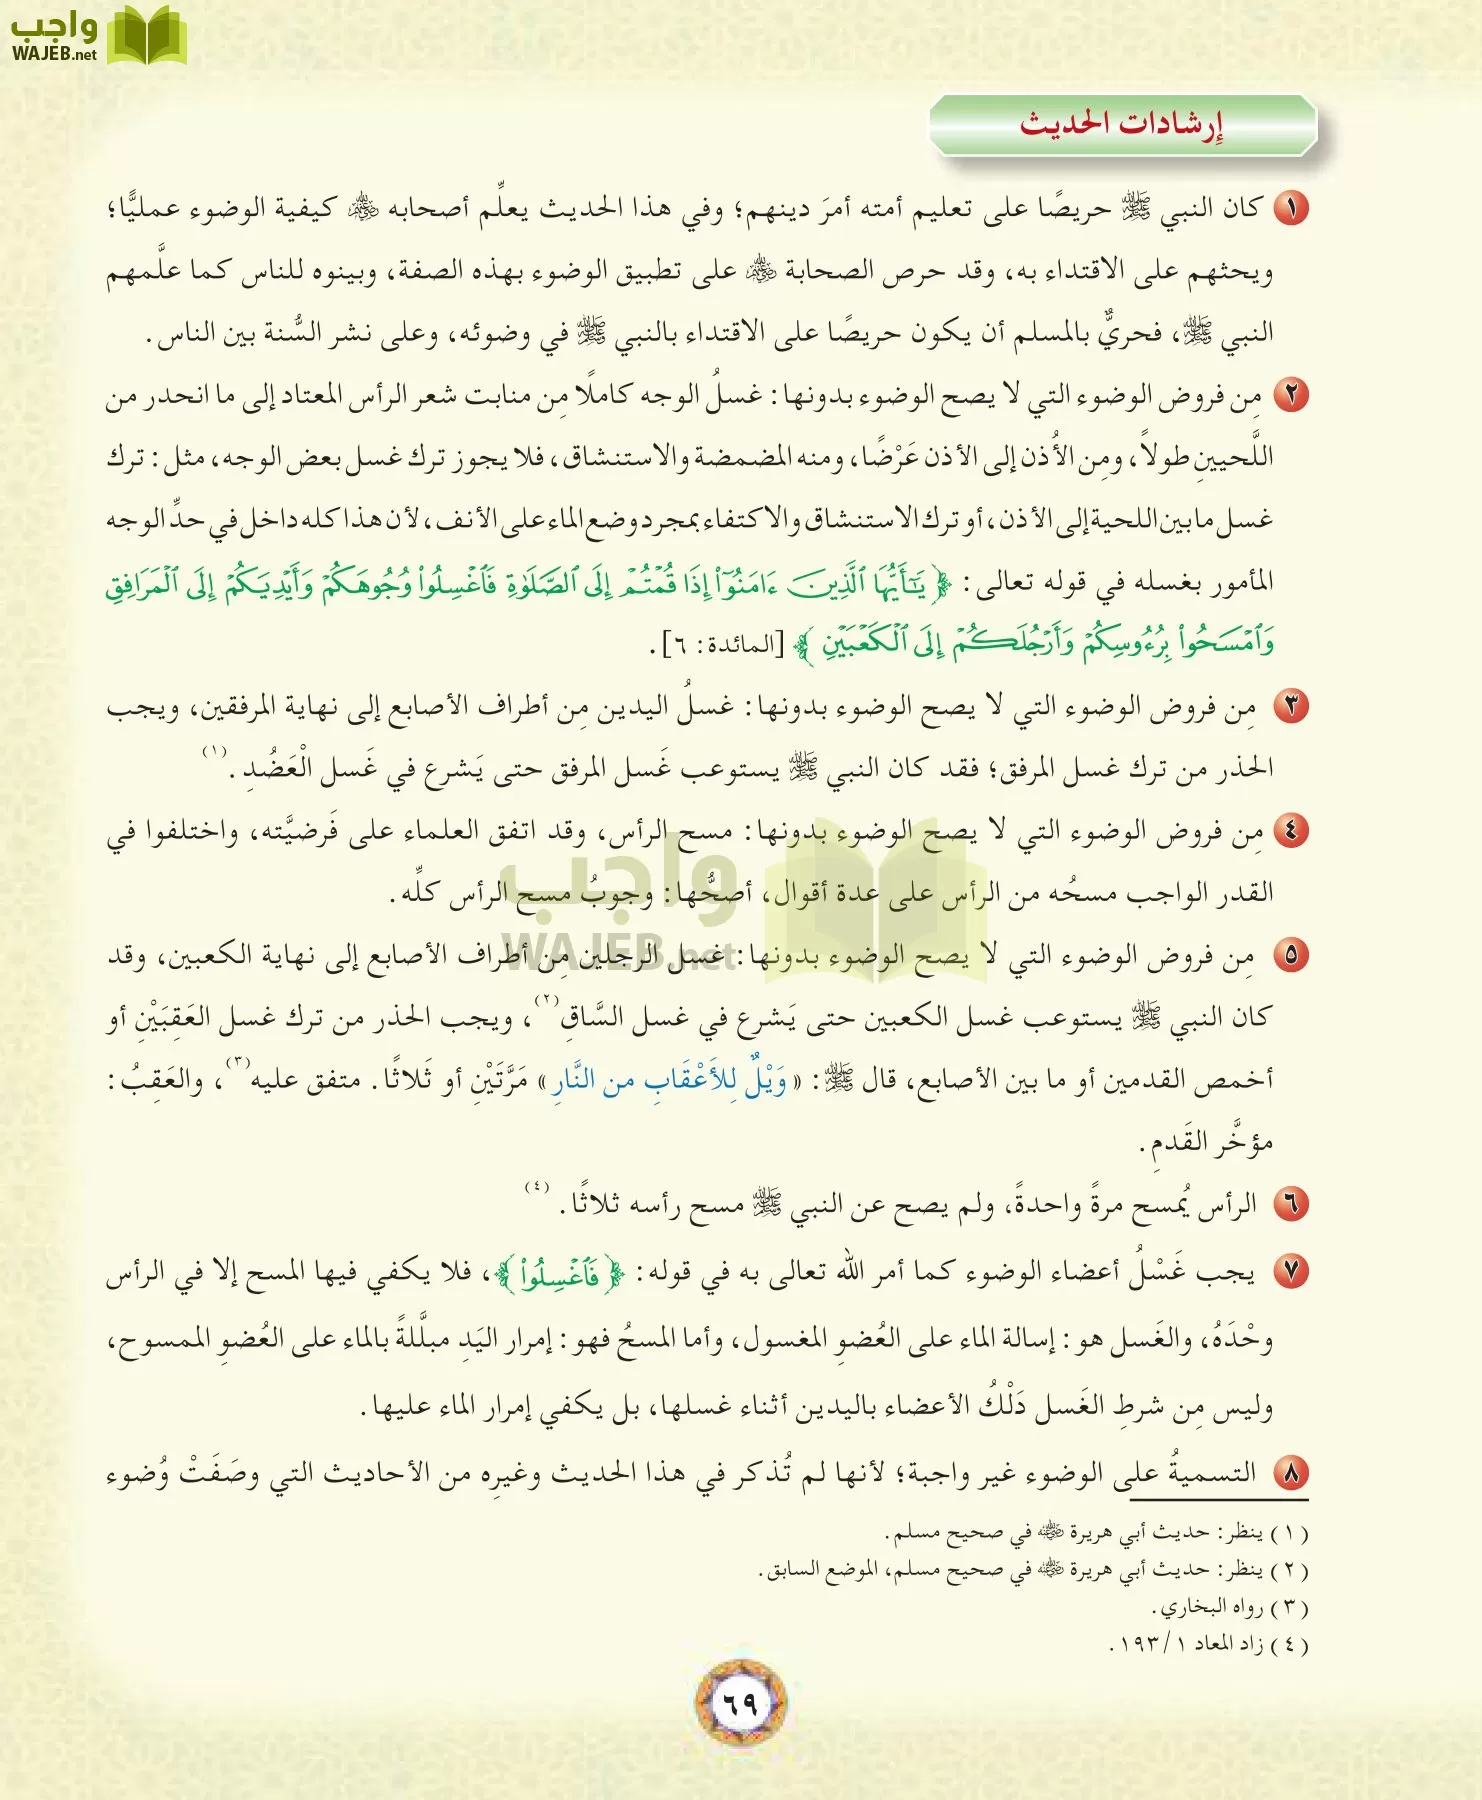 واجب
WAJEB.net
إرشادات الحديث
١ كان النبي ﷺ حريصًا على تعليم أمته أمرَ دينهم؛ وفي هذا الحديث يعلِّم أصحابه كيفية الوضوء عمليًّا؛
ويحثهم على الاقتداء به، وقد حرص الصحابة على تطبيق الوضوء بهذه الصفة، وبينوه للناس كما علَّمهم
النبي ﷺ، فحريٌّ بالمسلم أن يكون حريصًا على الاقتداء بالنبي ﷺ في وضوئه، وعلى نشر السُّنة بين الناس.
٢ مِن فروض الوضوء التي لا يصح الوضوء بدونها: غسلُ الوجه كاملًا مِن منابت شعر الرأس المعتاد إلى ما انحدر من
اللَّحيينِ طولاً، ومِن الأُذن إلى الأذن عَرْضًا، ومنه المضمضة والاستنشاق، فلا يجوز ترك غسل بعض الوجه، مثل: ترك
غسل ما بين اللحية إلى الأذن، أو ترك الاستنشاق والاكتفاء بمجرد وضع الماء على الأنف، لأن هذا كله داخل في حدِّ الوجه
المأمور بغسله في قوله تعالى: ﴿ يَٰٓأَيُّهَا ٱلَّذِينَ ءَامَنُوٓاْ إِذَا قُمۡتُمۡ إِلَى ٱلصَّلَوٰةِ فَٱغۡسِلُواْ وُجُوهَكُمۡ وَأَيۡدِيَكُمۡ إِلَى ٱلۡمَرَافِقِ
وَٱمۡسَحُواْ بِرُءُوسِكُمۡ وَأَرۡجُلَكُمۡ إِلَى ٱلۡكَعۡبَيۡنِ ﴾ [المائدة: ٦].
٣ مِن فروض الوضوء التي لا يصح الوضوء بدونها: غسلُ اليدين مِن أطراف الأصابع إلى نهاية المرفقين، ويجب
الحذر من ترك غسل المرفق؛ فقد كان النبي ﷺ يستوعب غَسل المرفق حتى يَشرع في غَسل الْعَضُدِ.(١)
٤ مِن فروض الوضوء التي لا يصح الوضوء بدونها: مسح الرأس، وقد اتفق العلماء على فَرضيَّته، واختلفوا في
القدر الواجب مسحُه من الرأس على عدة أقوال، أصحُّها: وجوبُ مسح الرأس كلِّه.
٥ مِن فروض الوضوء التي لا يصح الوضوء بدونها: غسل الرجلين مِن أطراف الأصابع إلى نهاية الكعبين، وقد
كان النبي ﷺ يستوعب غسل الكعبين حتى يَشرع في غسل السَّاقِ(٢)، ويجب الحذر من ترك غسل العَقِبَيْنِ أو
أخمص القدمين أو ما بين الأصابع، قال ﷺ: «وَيْلٌ لِلأَعْقَابِ من النَّارِ» مَرَّتَيْنِ أو ثَلاثًا. متفق عليه(٣)، والعَقِبُ:
مؤخَّر القَدمِ.
٦ الرأس يُمسح مرةً واحدةً، ولم يصح عن النبي ﷺ مسح رأسه ثلاثًا.(٤)
٧ يجب غَسْلُ أعضاء الوضوء كما أمر الله تعالى به في قوله: ﴿ فَٱغۡسِلُواْ ﴾، فلا يكفي فيها المسح إلا في الرأس
وحْدَهُ، والغَسل هو: إسالة الماء على العُضوِ المغسول، وأما المسحُ فهو: إمرار اليَدِ مبلَّلةً بالماء على العُضوِ الممسوح،
وليس مِن شرطِ الغَسل دَلْكُ الأعضاء باليدين أثناء غسلها، بل يكفي إمرار الماء عليها.
٨ التسميةُ على الوضوء غير واجبة؛ لأنها لم تُذكر في هذا الحديث وغيرِه من الأحاديث التي وصَفَتْ وُضوء
(١) ينظر: حديث أبي هريرة ﵁ في صحيح مسلم.
(٢) ينظر: حديث أبي هريرة ﵁ في صحيح مسلم، الموضع السابق.
(٣) رواه البخاري.
(٤) زاد المعاد ١/ ١٩٣.
٦٩
واجب
WAJEB.net